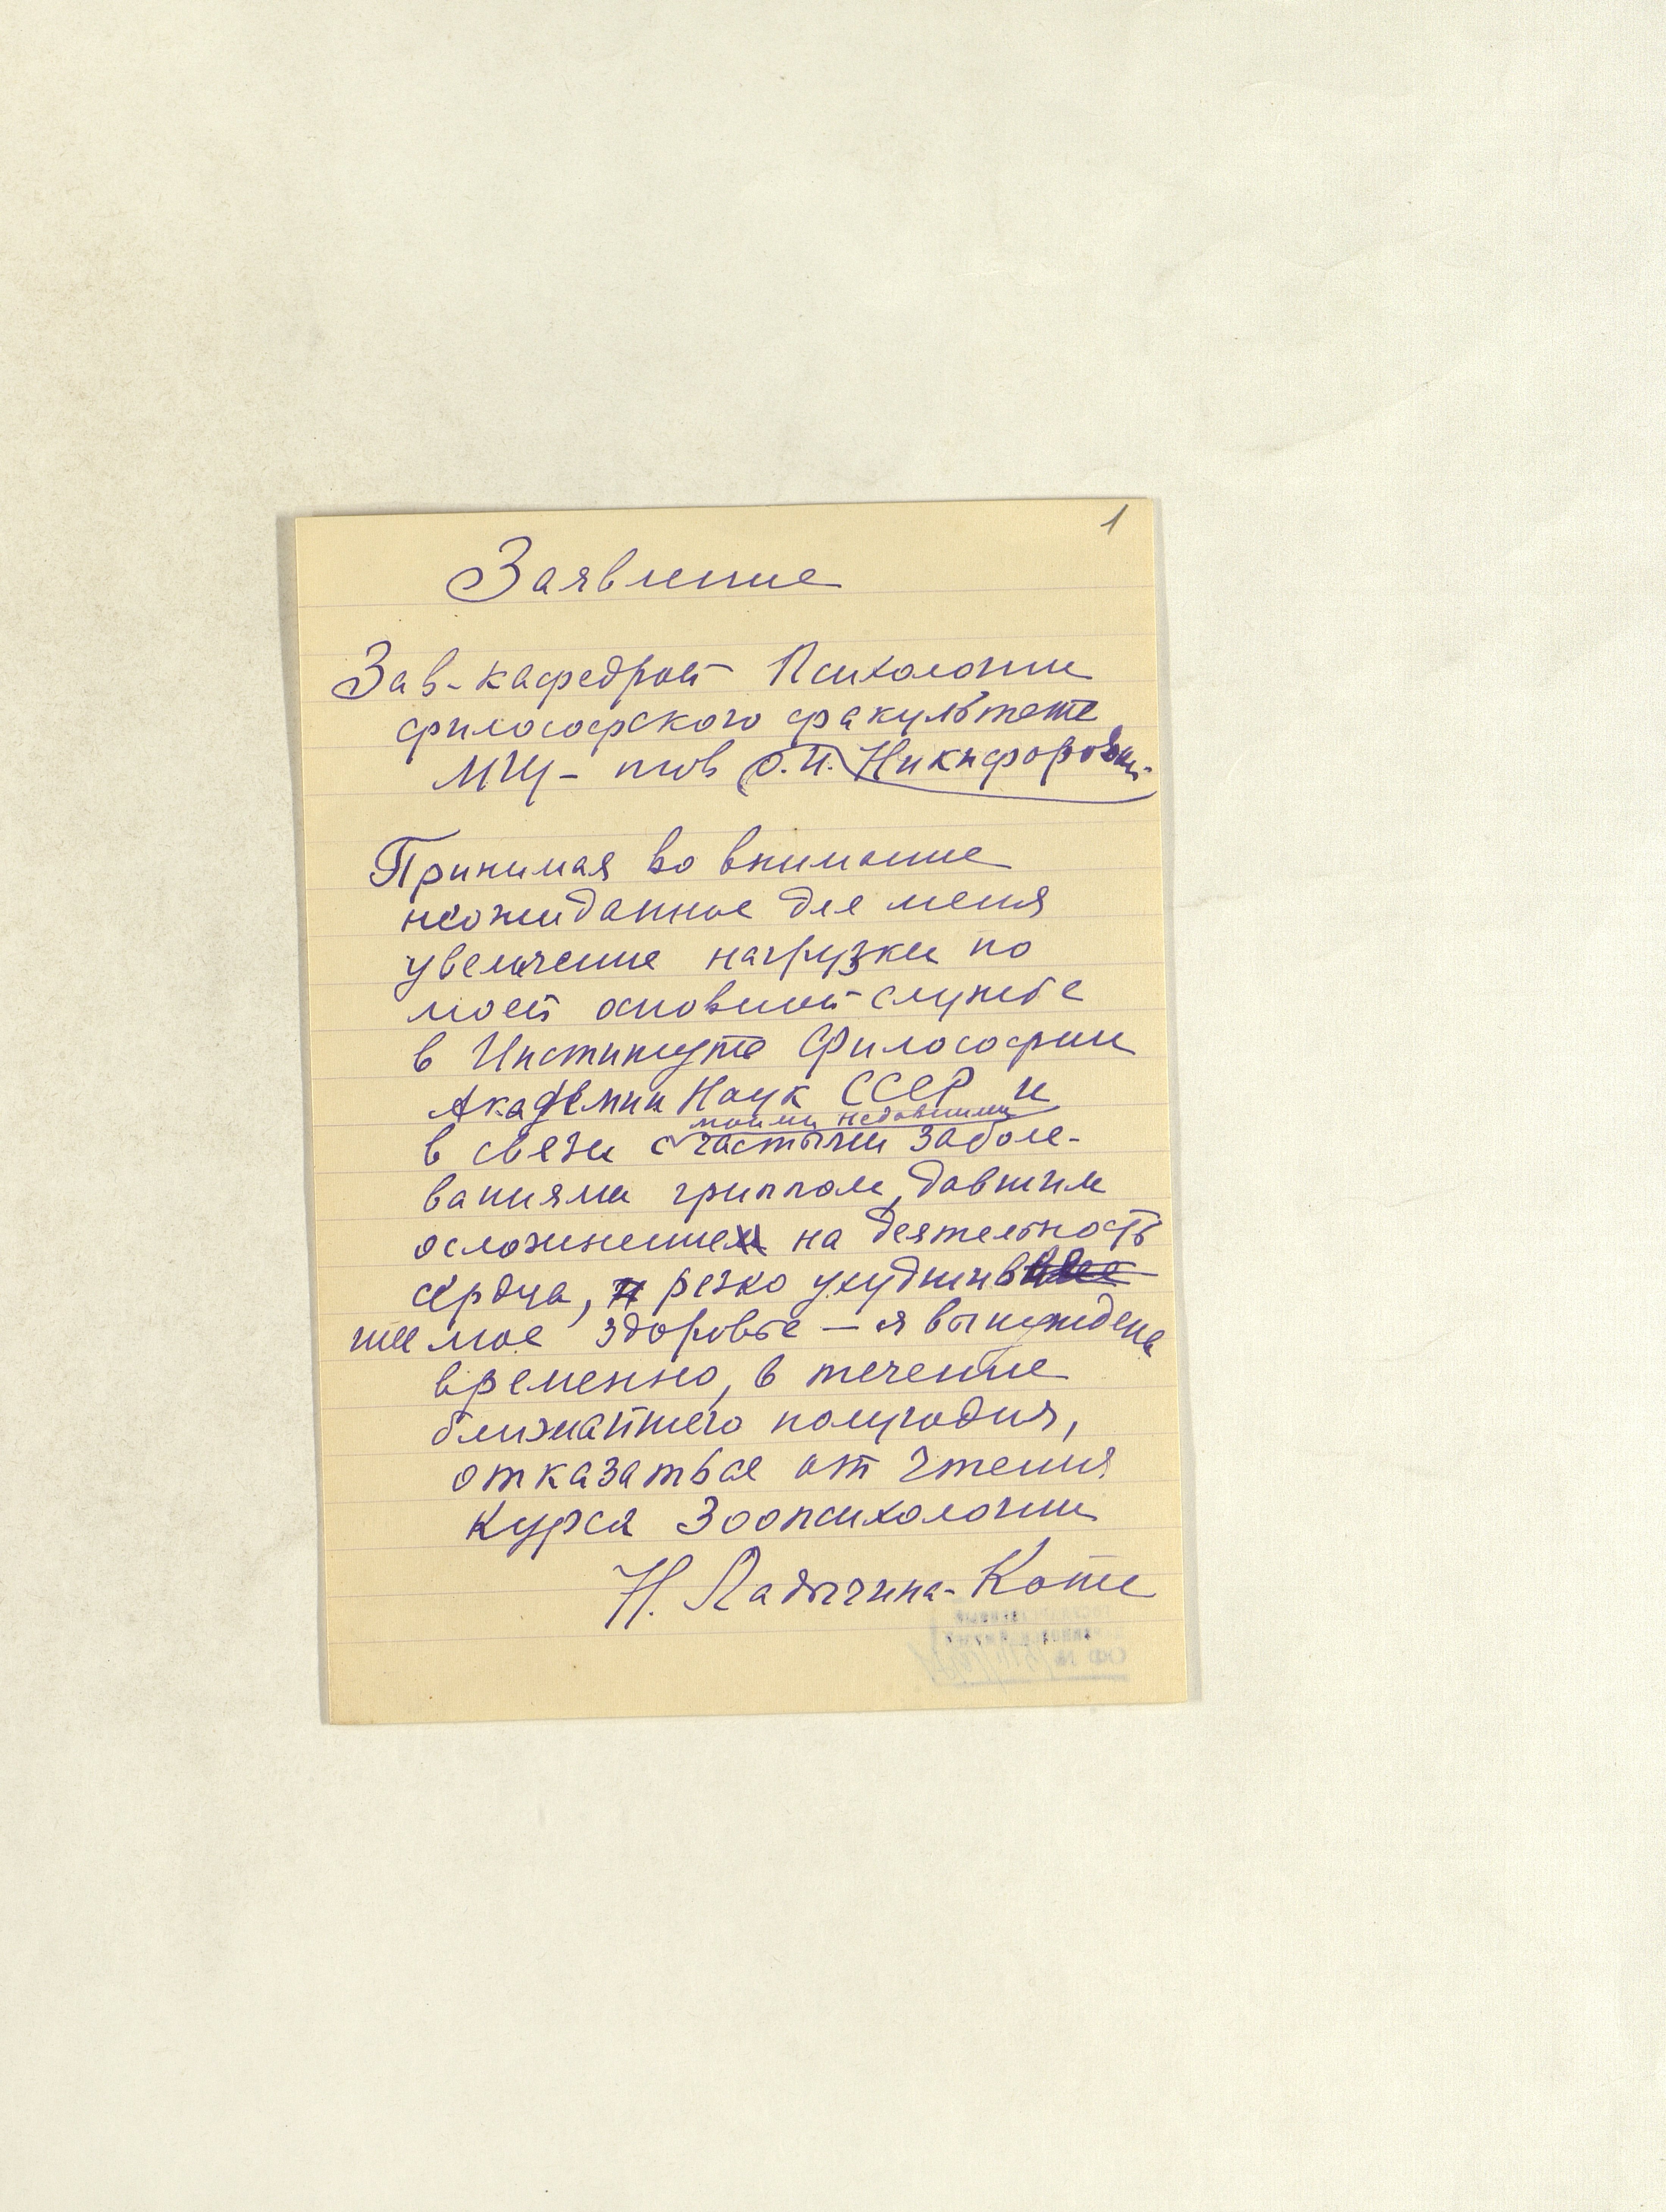 1
Заявление
Зав-кафедрой Психологии
философского факультета
МГУ- тов О.И. Никифоровой
Принимая во внимание
неожиданное для меня
увеличение нагрузки по
моей основной службе
в Институте Философии
Академии Наук СССР и
моими недавними
в связи с частыми заболе-
ваниями гриппом, давшим
осложнение на деятельность
сердца, резко ухудшив
шее мое здоровье — я вынуждена
временно, в течение
ближайшего полугодия,
отказаться от чтения
курса Зоопсихологии
Н. Ладыгина-Котс